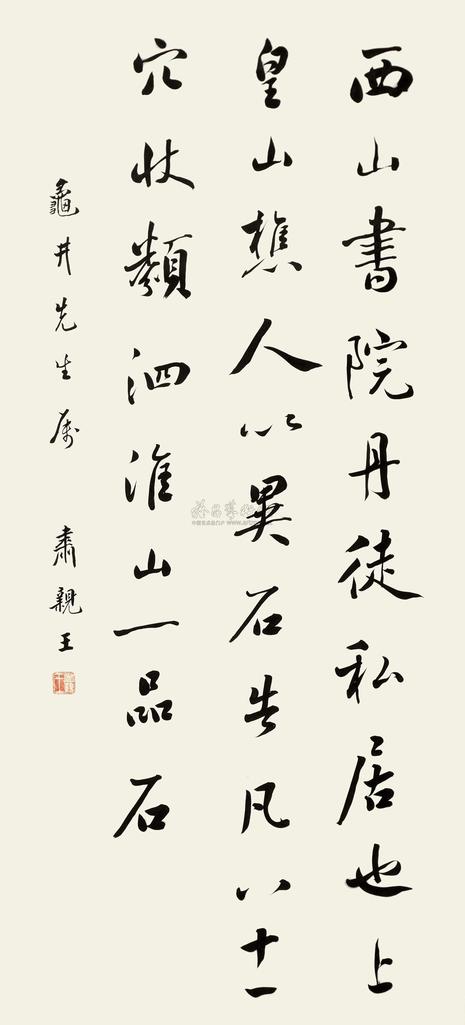 西山書院丹徒私居也上
皇山樵人以異石告凡八十一
穴狀類泗淮山一品石
龜井先生屬
肅親王